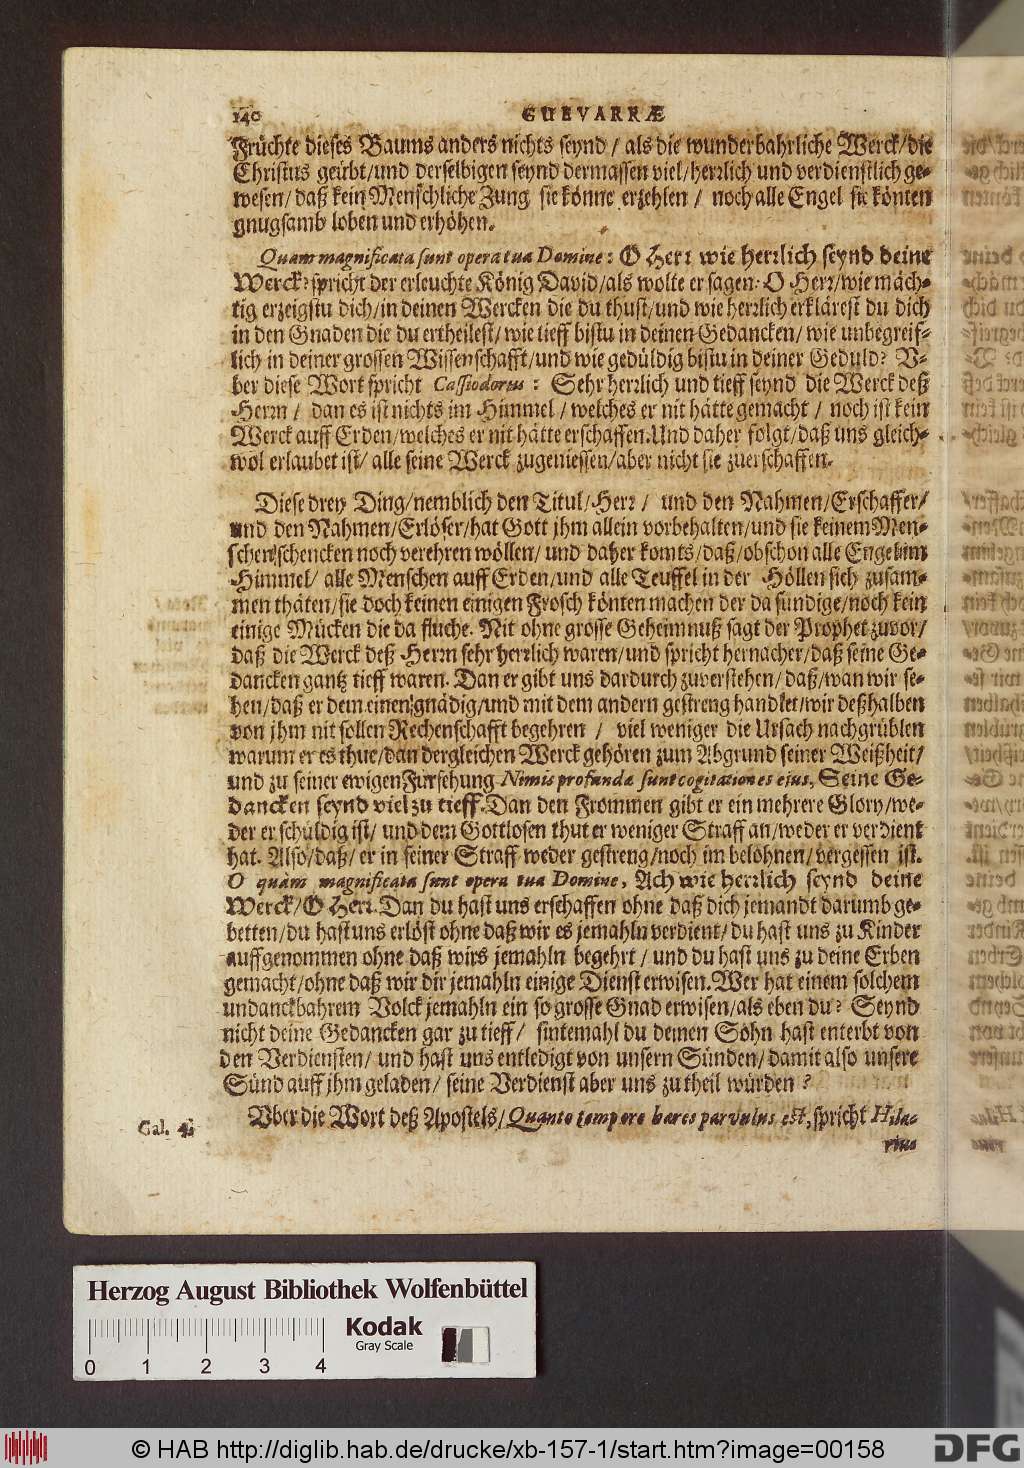 140 GUEVARRÆ
Früchte dieses Baums anders nichts seynd / als die wunderbahrliche Werck / die
Christus geübt / und derselbigen seynd dermassen viel / herrlich und verdienstlich ge-
wesen / daß kein Menschliche Zung sie könne erzehlen / noch alle Engel sie könten
gnugsamb loben und erhöhen.
Quam magnificata sunt opera tua Domine: O Herr wie herrlich seynd deine
Werck? spricht der erleuchte König David / als wolte er sagen: O Herr / wie mäch-
tig erzeigstu dich / in deinen Wercken die du thust / und wie herrlich erklärest du dich
in den Gnaden die du ertheilest / wie tieff bistu in deinen Gedancken / wie unbegreif-
lich in deiner grossen Wissenschafft / und wie gedüldig bistu in deiner Geduld? V-
ber diese Wort spricht Cassiodorus: Sehr herrlich und tieff seynd die Werck deß
Herrn / dan es ist nichts im Himmel / welches er nit hätte gemacht / noch ist kein
Werck auff Erden / welches er nit hätte erschaffen. Und daher folgt / daß uns gleich-
wol erlaubet ist / alle seine Werck zugeniessen / aber nicht sie zuerschaffen.
Diese drey Ding / nemblich den Titul / Herr / und den Nahmen / Erschaffer /
und den Nahmen / Erlöser / hat Gott jhm allein vorbehalten / und sie keinem Men-
schen schencken noch verehren wöllen / und daher komts / daß / obschon alle Engel im
Himmel / alle Menschen auff Erden / und alle Teuffel in der Höllen sich zusam-
men thäten / sie doch keinen einigen Frosch könten machen der da sündige / noch kein
einige Mücken die da fluche. Nit ohne grosse Geheimnuß sagt der Prophet zuvor /
daß die Werck deß Herrn sehr herrlich waren / und spricht hernacher / daß seine Ge-
dancken gantz tieff waren. Dan er gibt uns dardurch zuverstehen / daß / wan wir se-
hen / daß er dem einen gnädig / und mit dem andern gestreng handlet / wir deßhalben
von jhm nit sollen Rechenschafft begehren / viel weniger die Ursach nachgrüblen
warum er es thue / dan dergleichen Werck gehören zum Abgrund seiner Weißheit /
und zu seiner ewigen Fürsehung Nimis profundæ sunt cogitationes ejus, Seine Ge-
dancken seynd viel zu tieff. Dan den Frommen gibt er ein mehrere Glory / we-
der er schüldig ist / und dem Gottlosen thut er weniger Straff an / weder er verdient
hat. Also / daß / er in seiner Straff weder gestreng / noch im belöhnen / vergessen ist.
O quàm magnificata sunt opera tua Domine, Ach wie herrlich seynd deine
Werck / O Herr. Dan du hast uns erschaffen ohne daß dich jemandt darumb ge-
betten / du hast uns erlöst ohne daß wir es jemahln verdient / du hast uns zu Kinder
auffgenommen ohne daß wirs jemahln begehrt / und du hast uns zu deine Erben
gemacht / ohne daß wir dir jemahln einige Dienst erwisen. Wer hat einem solchem
undanckbahrem Volck jemahln ein so grosse Gnad erwisen / als eben du? Seynd
nicht deine Gedancken gar zu tieff / sintemahl du deinen Sohn hast enterbt von
den Verdiensten / und hast uns entledigt von unsern Sünden / damit also unsere
Sünd auff jhm geladen / seine Verdienst aber uns zu theil würden?
Gal. 4. Vber die Wort deß Apostels / Quanto tempore hæres parvulus est, spricht Hila-
rius
Herzog August Bibliothek Wolfenbüttel
Kodak
Gray Scale
0 1 2 3 4
© HAB http://diglib.hab.de/drucke/xb-157-1/start.htm?image=00158
DFG